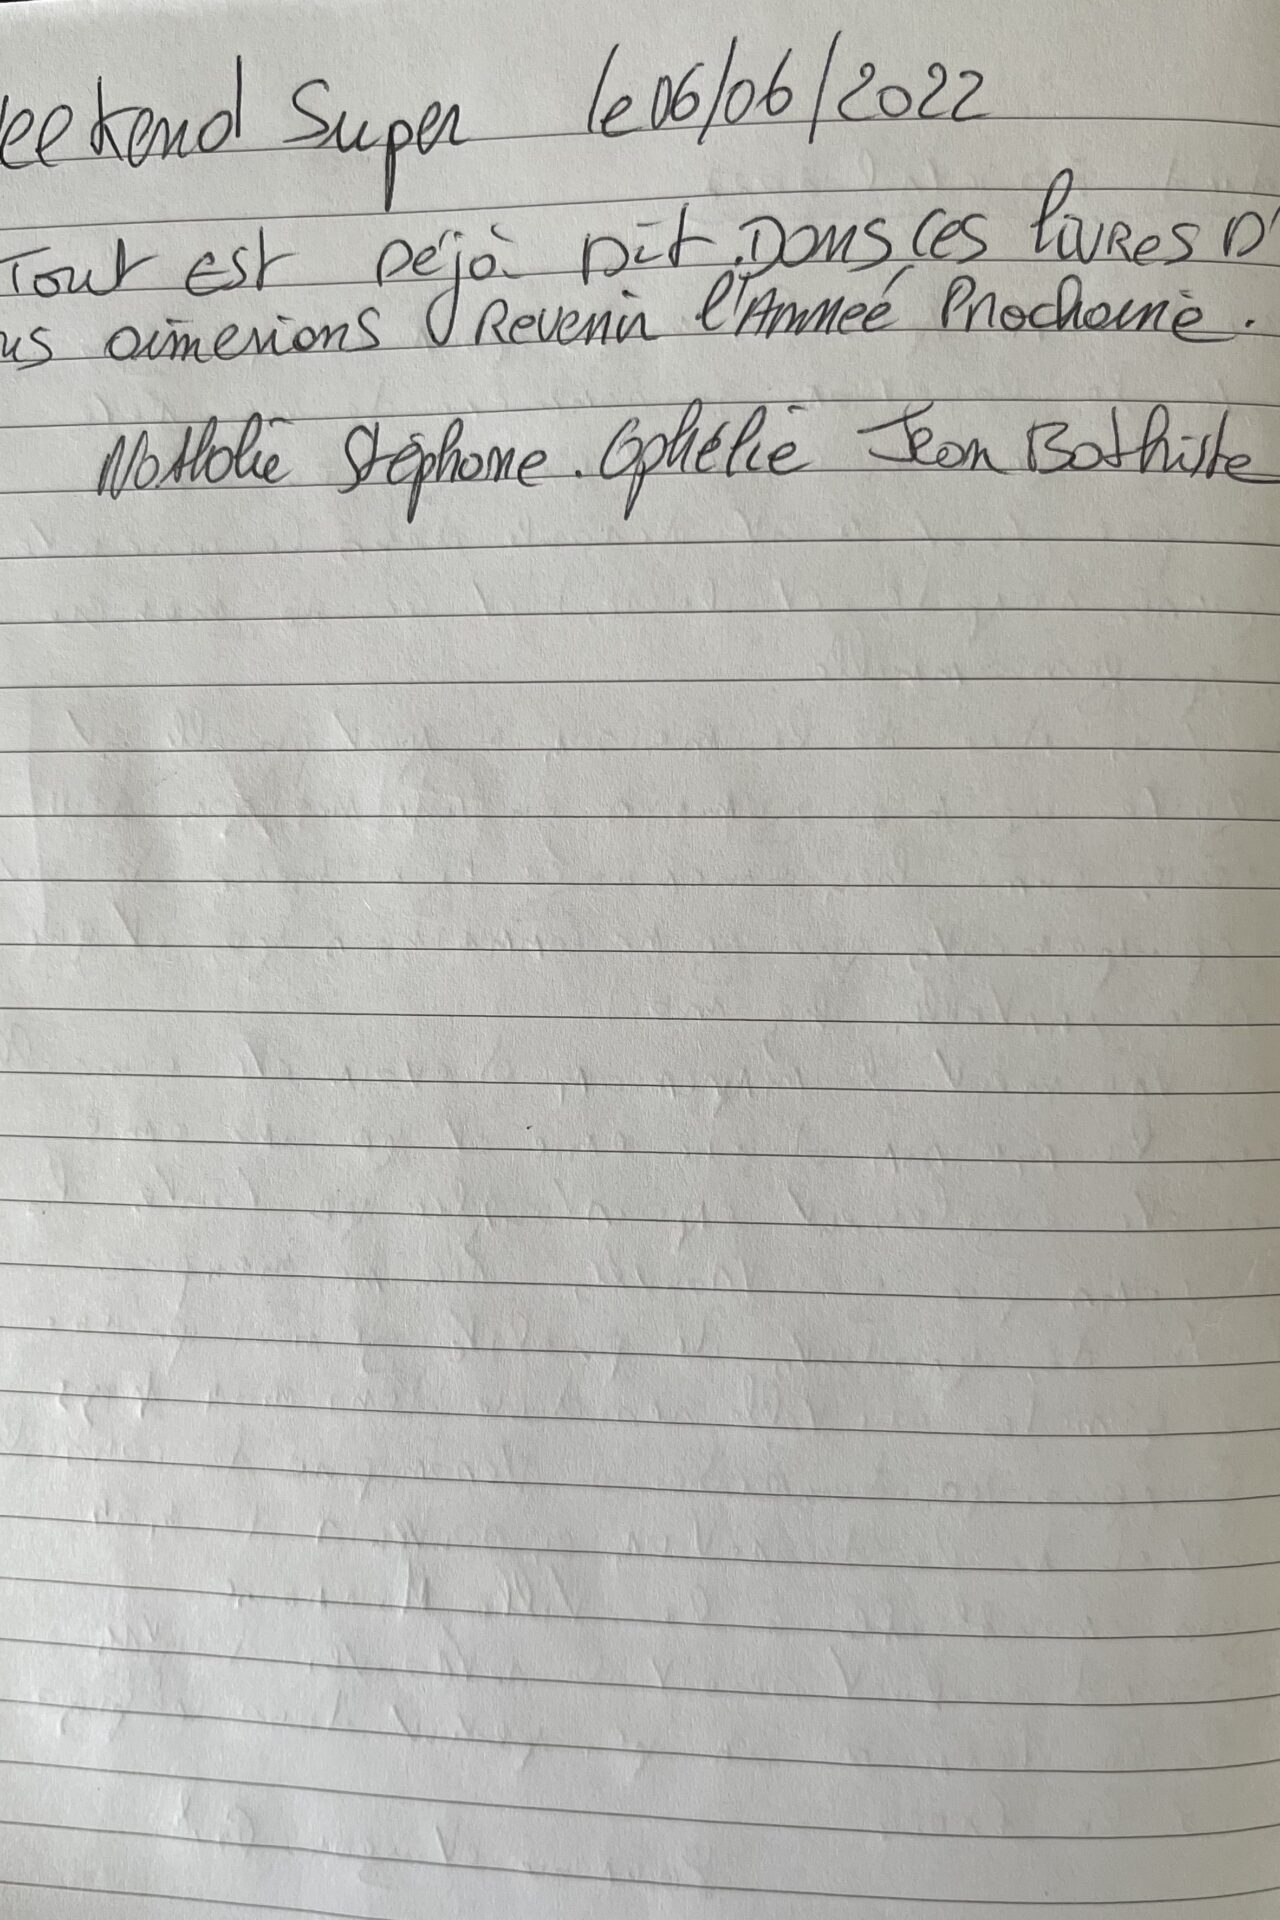 eekend Super le 06/06/2022
Tout est Déjà Dit. Dans ces livres D'
us aimerions Revenir l'Année Prochaine.
Nathalie Stéphane. Ophélie Jean Bathiste